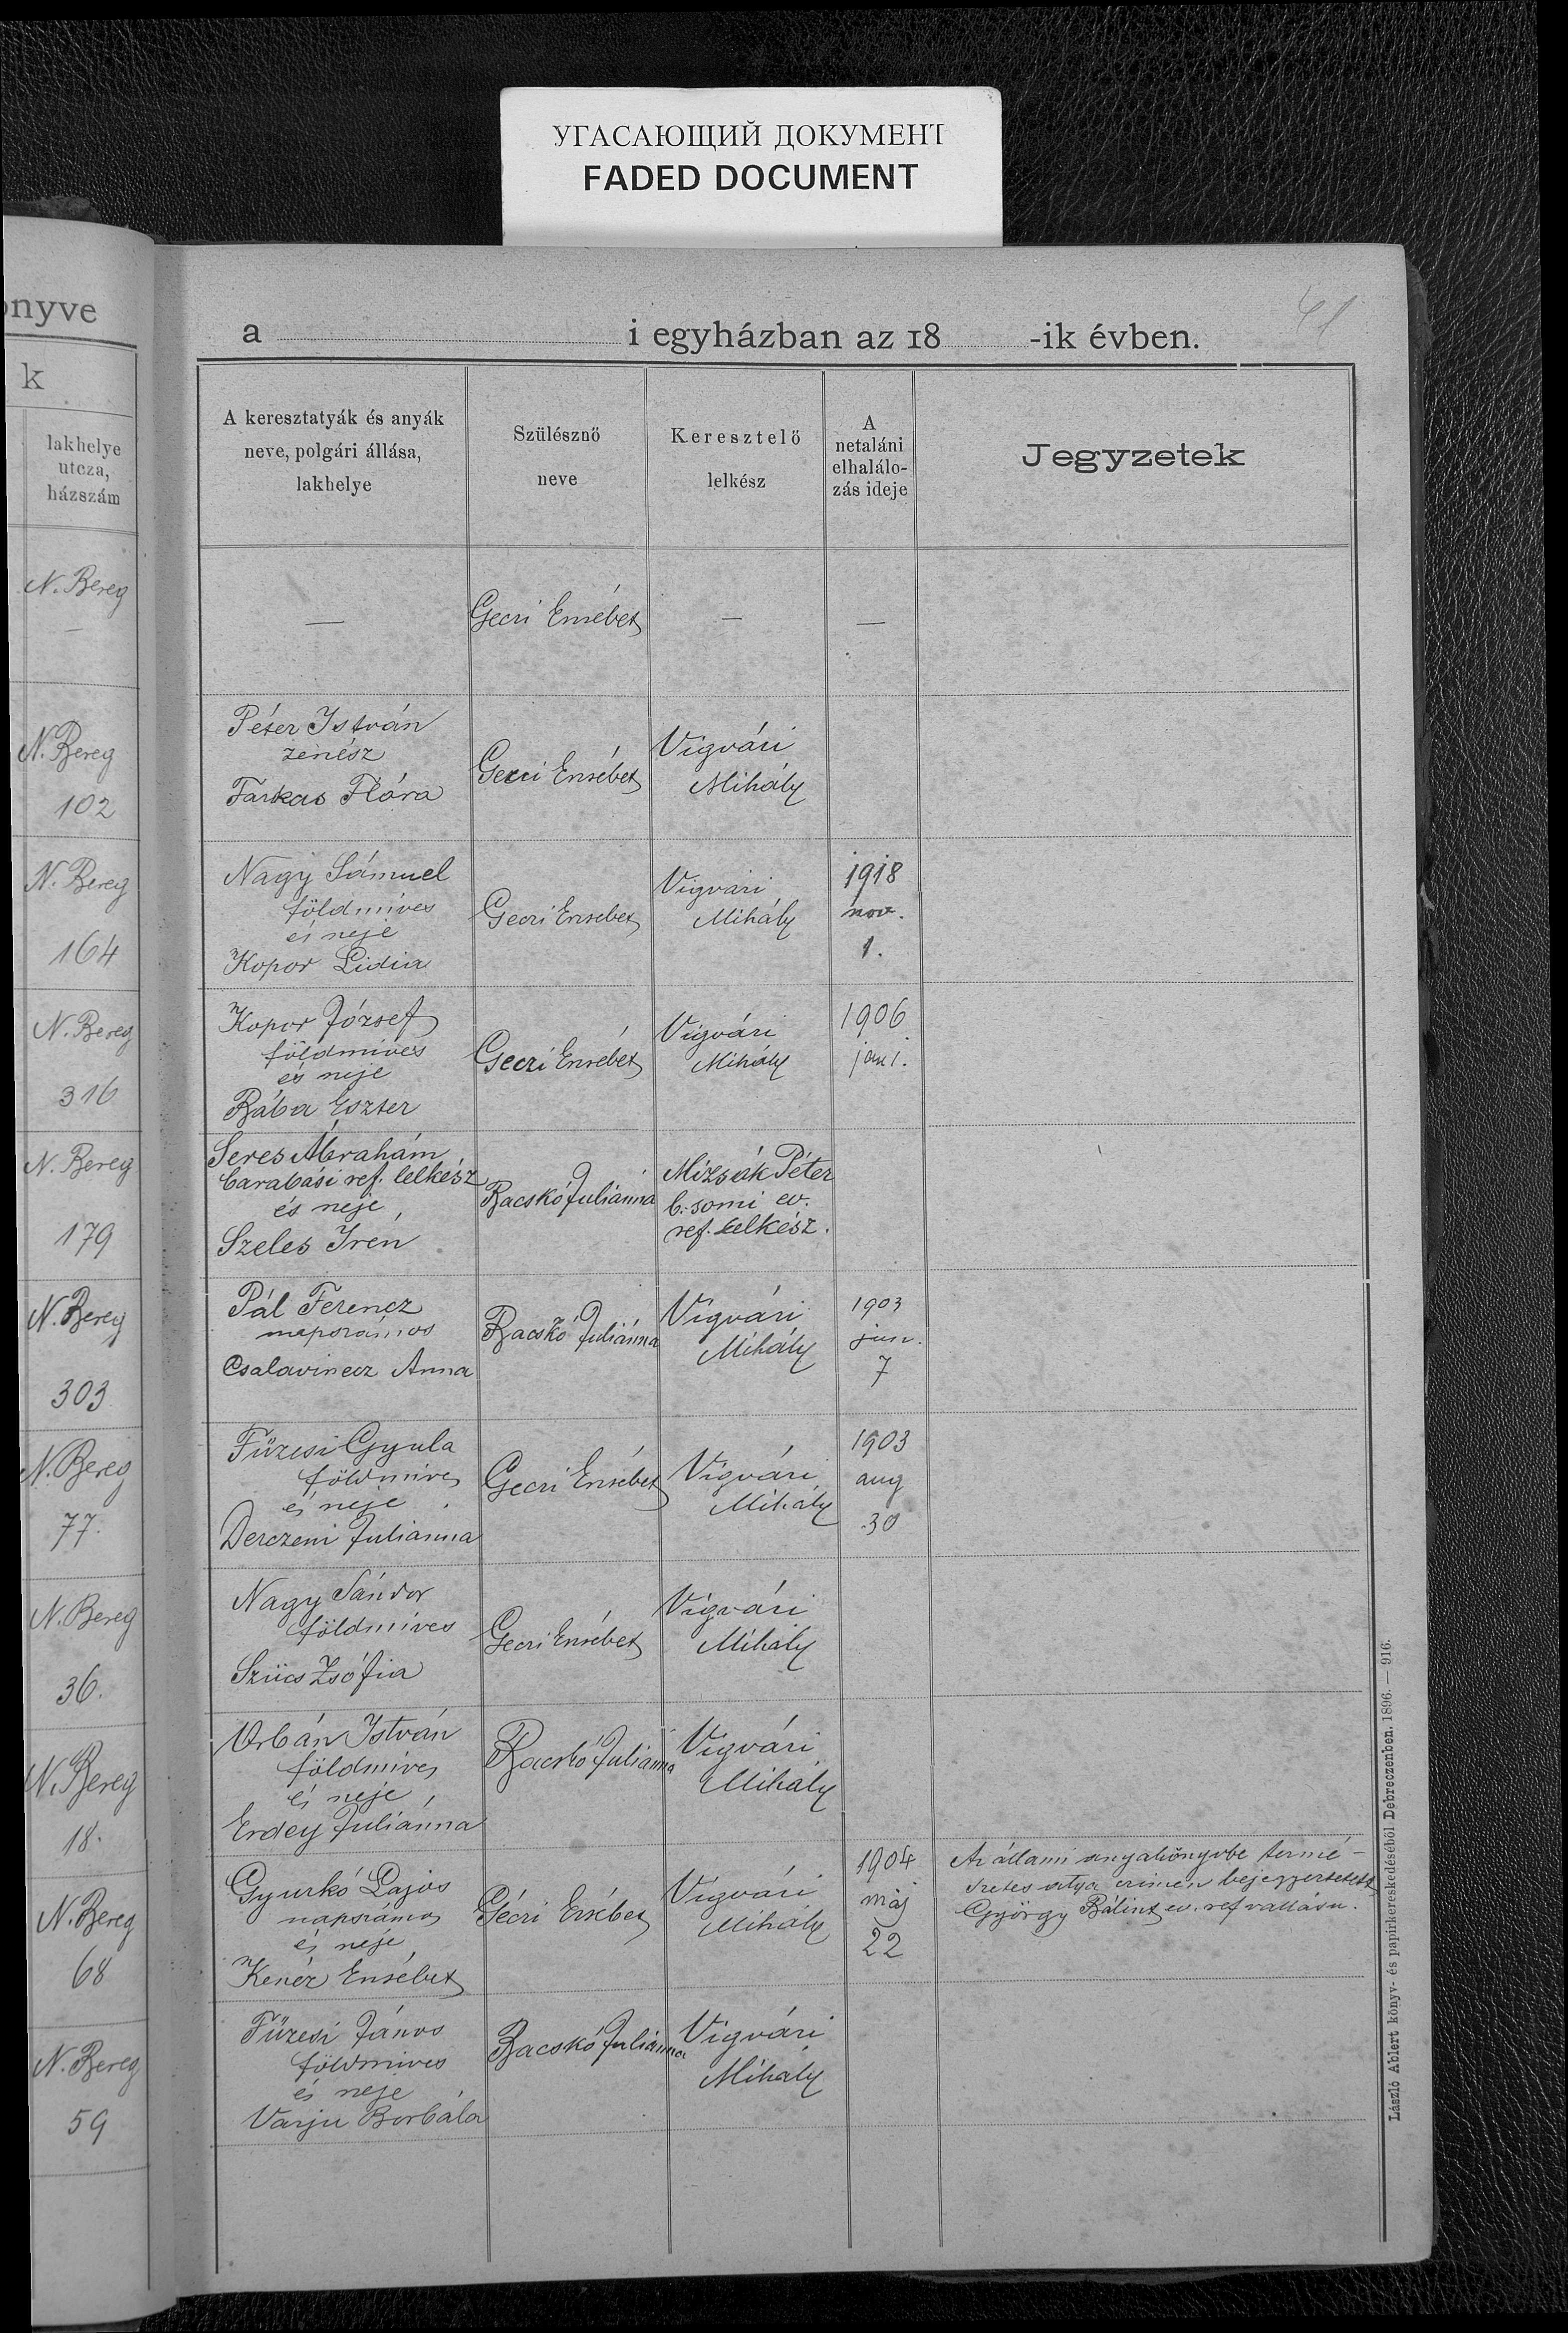 УГАСАЮЩИЙ ДОКУМЕНТ
FADED DOCUMENT
önyve
k
lakhelye
utcza,
házszám
a i egyházban az 18 -ik évben.
41
A keresztatyák és anyák
neve, polgári állása,
lakhelye
Szülésznö
neve
Keresztelö
lelkész
A
netaláni
elhalálo-
zás ideje
Jegyzetek
N. Bereg
—
—
Geczi Ersébet
—
—
N. Bereg
102
Péter István
zenész
Farkas Flóra
Geczi Ersébet
Vigvári
Mihály
N. Bereg
164
Nagy Sámuel
földmives
és neje
Kopor Lidia
Geczi Ersebet
Vigvári
Mihály
1918
nov.
1.
N. Bereg
316
Kopor József
földmives
és neje
Bába Eszter
Geczi Ersébet
Vigvári
Mihály
1906
jan 1.
N. Bereg
179
Seres Ábrahám
barabási ref. lelkész
és neje
Szeles Irén
Bacskó Juliánna
Mizsák Péter
b. somi ev.
ref. lelkész.
N. Bereg
303
Pál Ferencz
napszámos
Csalavinecz Anna
Bacskó Juliánna
Vigvári
Mihály
1903
jun.
7
N. Bereg
77.
Füzesi Gyula
földmives
és neje
Derczeni Julianna
Geczi Ersébet
Vigvári
Mihály
1903
aug
30
N. Bereg
36.
Nagy Sándor
földmives
Szücs Zsófia
Geczi Ersébet
Vigvári
Mihály
N. Bereg
18.
Orbán István
földmives
és neje
Erdey Juliánna
Bacskó Juliánna
Vigvári
Mihály
N. Bereg
68
Gyurkó Lajos
napszámos
és neje
Kenéz Ersébet
Géczi Ersébet
Vigvári
Mihály
1904
máj
22
Az állami anyakönyvbe termé-
szetes atya címén bejegyeztetett
György Bálint ev. ref vallásu.
N. Bereg
59
Füzesi János
földmives
és neje
Varju Borbála
Bacskó Julianna
Vigvári
Mihály
László Albert könyv- és papirkereskedéséböl Debreczenben. 1896. — 916.